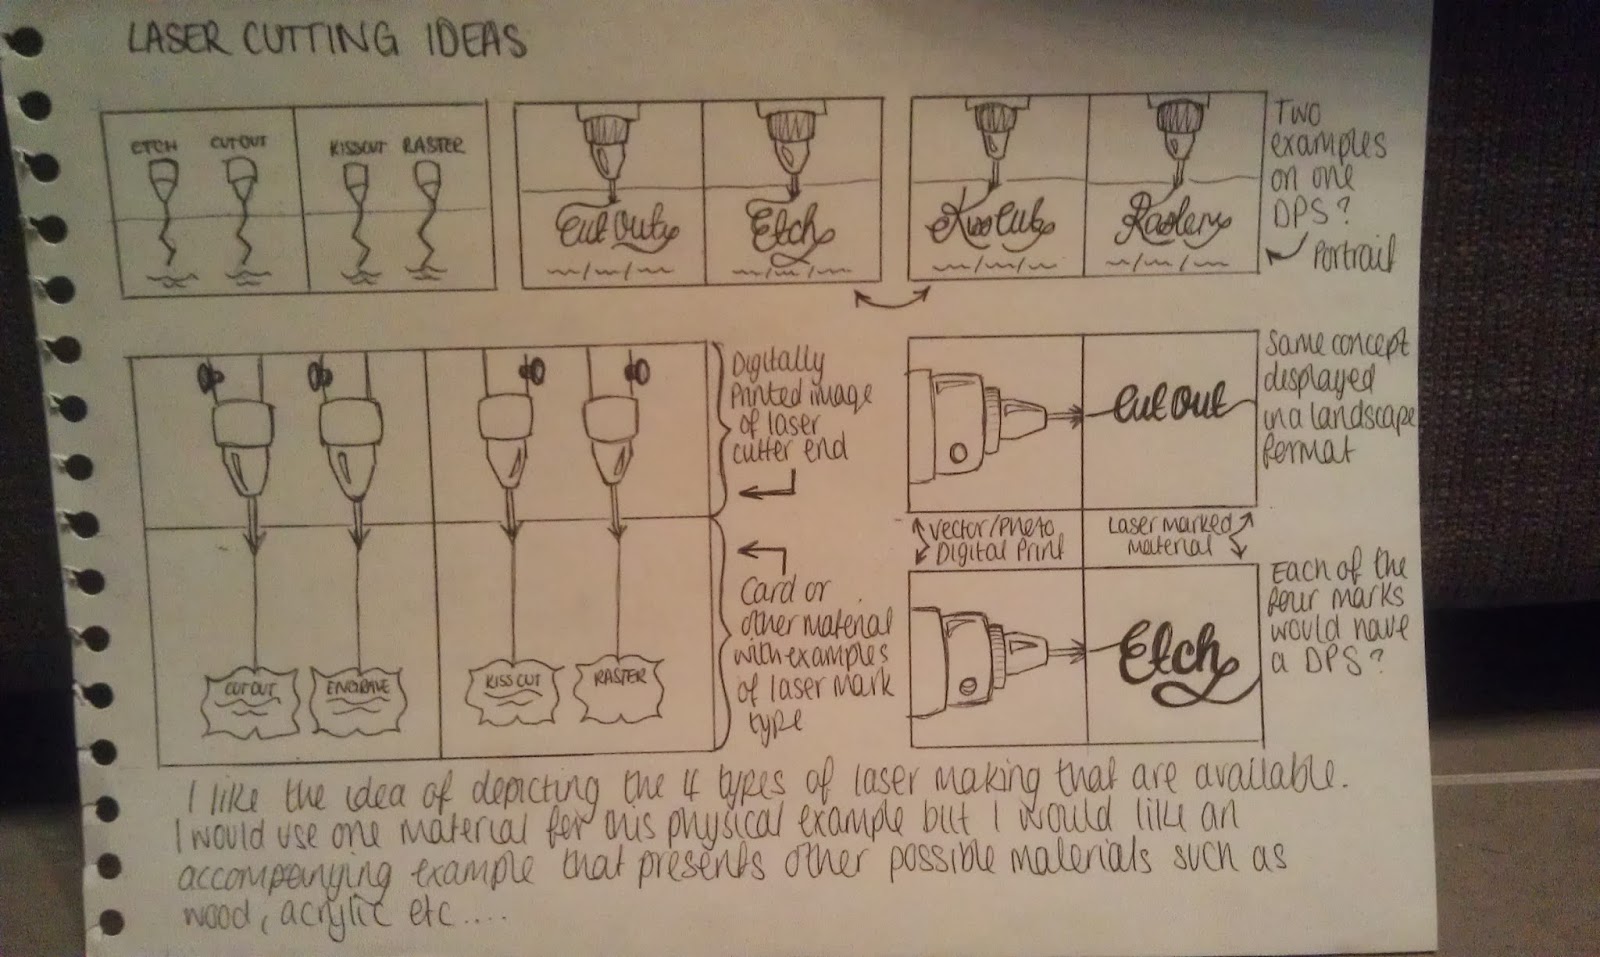 LASER CUTTING IDEAS
ETCH CUTOUT KISSCUT RASTER
Cut Out Etch
Kiss Cut Raster
Two
examples
on one
DPS?
Portrait
Digitally
Printed image
of laser
cutter end
Card or
other material
with examples
of laser mark
type
CUTOUT ENGRAVE KISS CUT RASTER
Cut Out
Same concept
displayed
in a landscape
format
Vector/Photo
Digital Print
Laser marked
Material
Etch
Each of the
four marks
would have
a DPS?
I like the idea of depicting the 4 types of laser making that are available.
I would use one material for this physical example but I would like an
accompanying example that presents other possible materials such as
wood, acrylic etc....